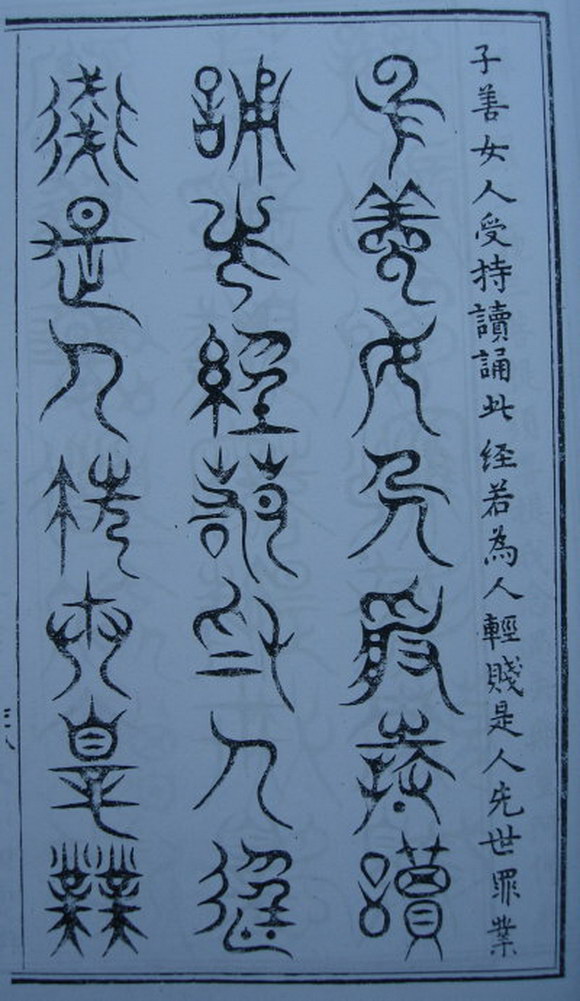 子善女人受持讀誦此経若為人輕賤是人先世罪業
子善女人受持讀
誦此經若為人輕
賤是人先世罪業
三八